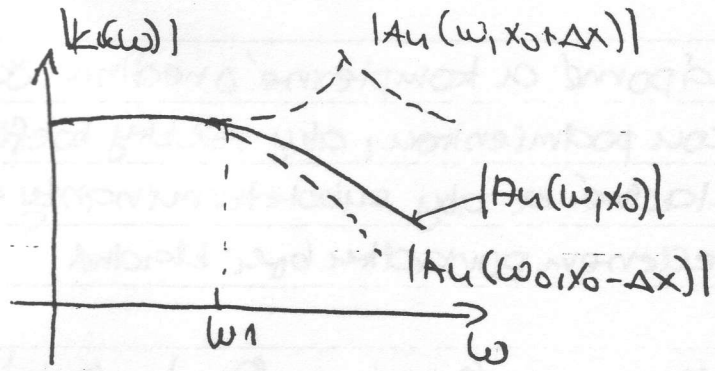 |Au(ω,x0+Δx)|
|Au(ω,x0)|
|Au(ω0,x0-Δx)|
ω1
ω